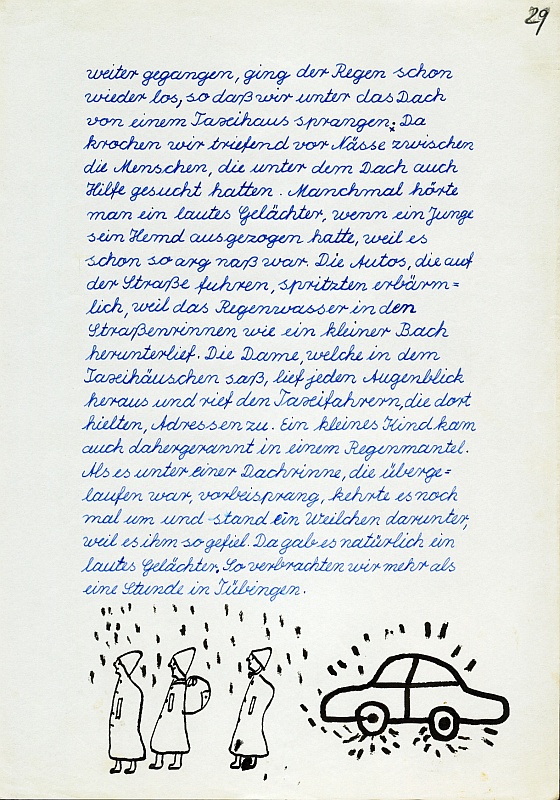 29
weiter gegangen, ging der Regen schon
wieder los, so daß wir unter das Dach
von einem Taxihaus sprangen. Da
krochen wir triefend vor Nässe zwischen
die Menschen, die unter dem Dach auch
Hilfe gesucht hatten. Manchmal hörte
man ein lautes Gelächter, wenn ein Junge
sein Hemd ausgezogen hatte, weil es
schon so arg naß war. Die Autos, die auf
der Straße fuhren, spritzten erbärm=
lich, weil das Regenwasser in den
Straßenrinnen wie ein kleiner Bach
herunterlief. Die Dame, welche in dem
Taxihäuschen saß, lief jeden Augenblick
heraus und rief den Taxifahrern, die dort
hielten, Adressen zu. Ein kleines Kind kam
auch dahergerannt in einem Regenmantel.
Als es unter einer Dachrinne, die überge=
laufen war, vorbeisprang, kehrte es noch
mal um und stand ein Weilchen darunter,
weil es ihm so gefiel. Da gab es natürlich ein
lautes Gelächter. So verbrachten wir mehr als
eine Stunde in Tübingen.